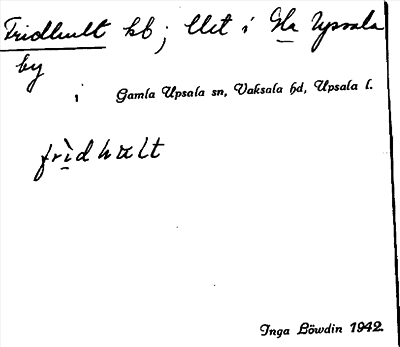 Fridhult hb; llet i Gla Upsala
by
i Gamla Upsala sn, Vaksala hd, Upsala l.
frìdhult
Inga Löwdin 1942.